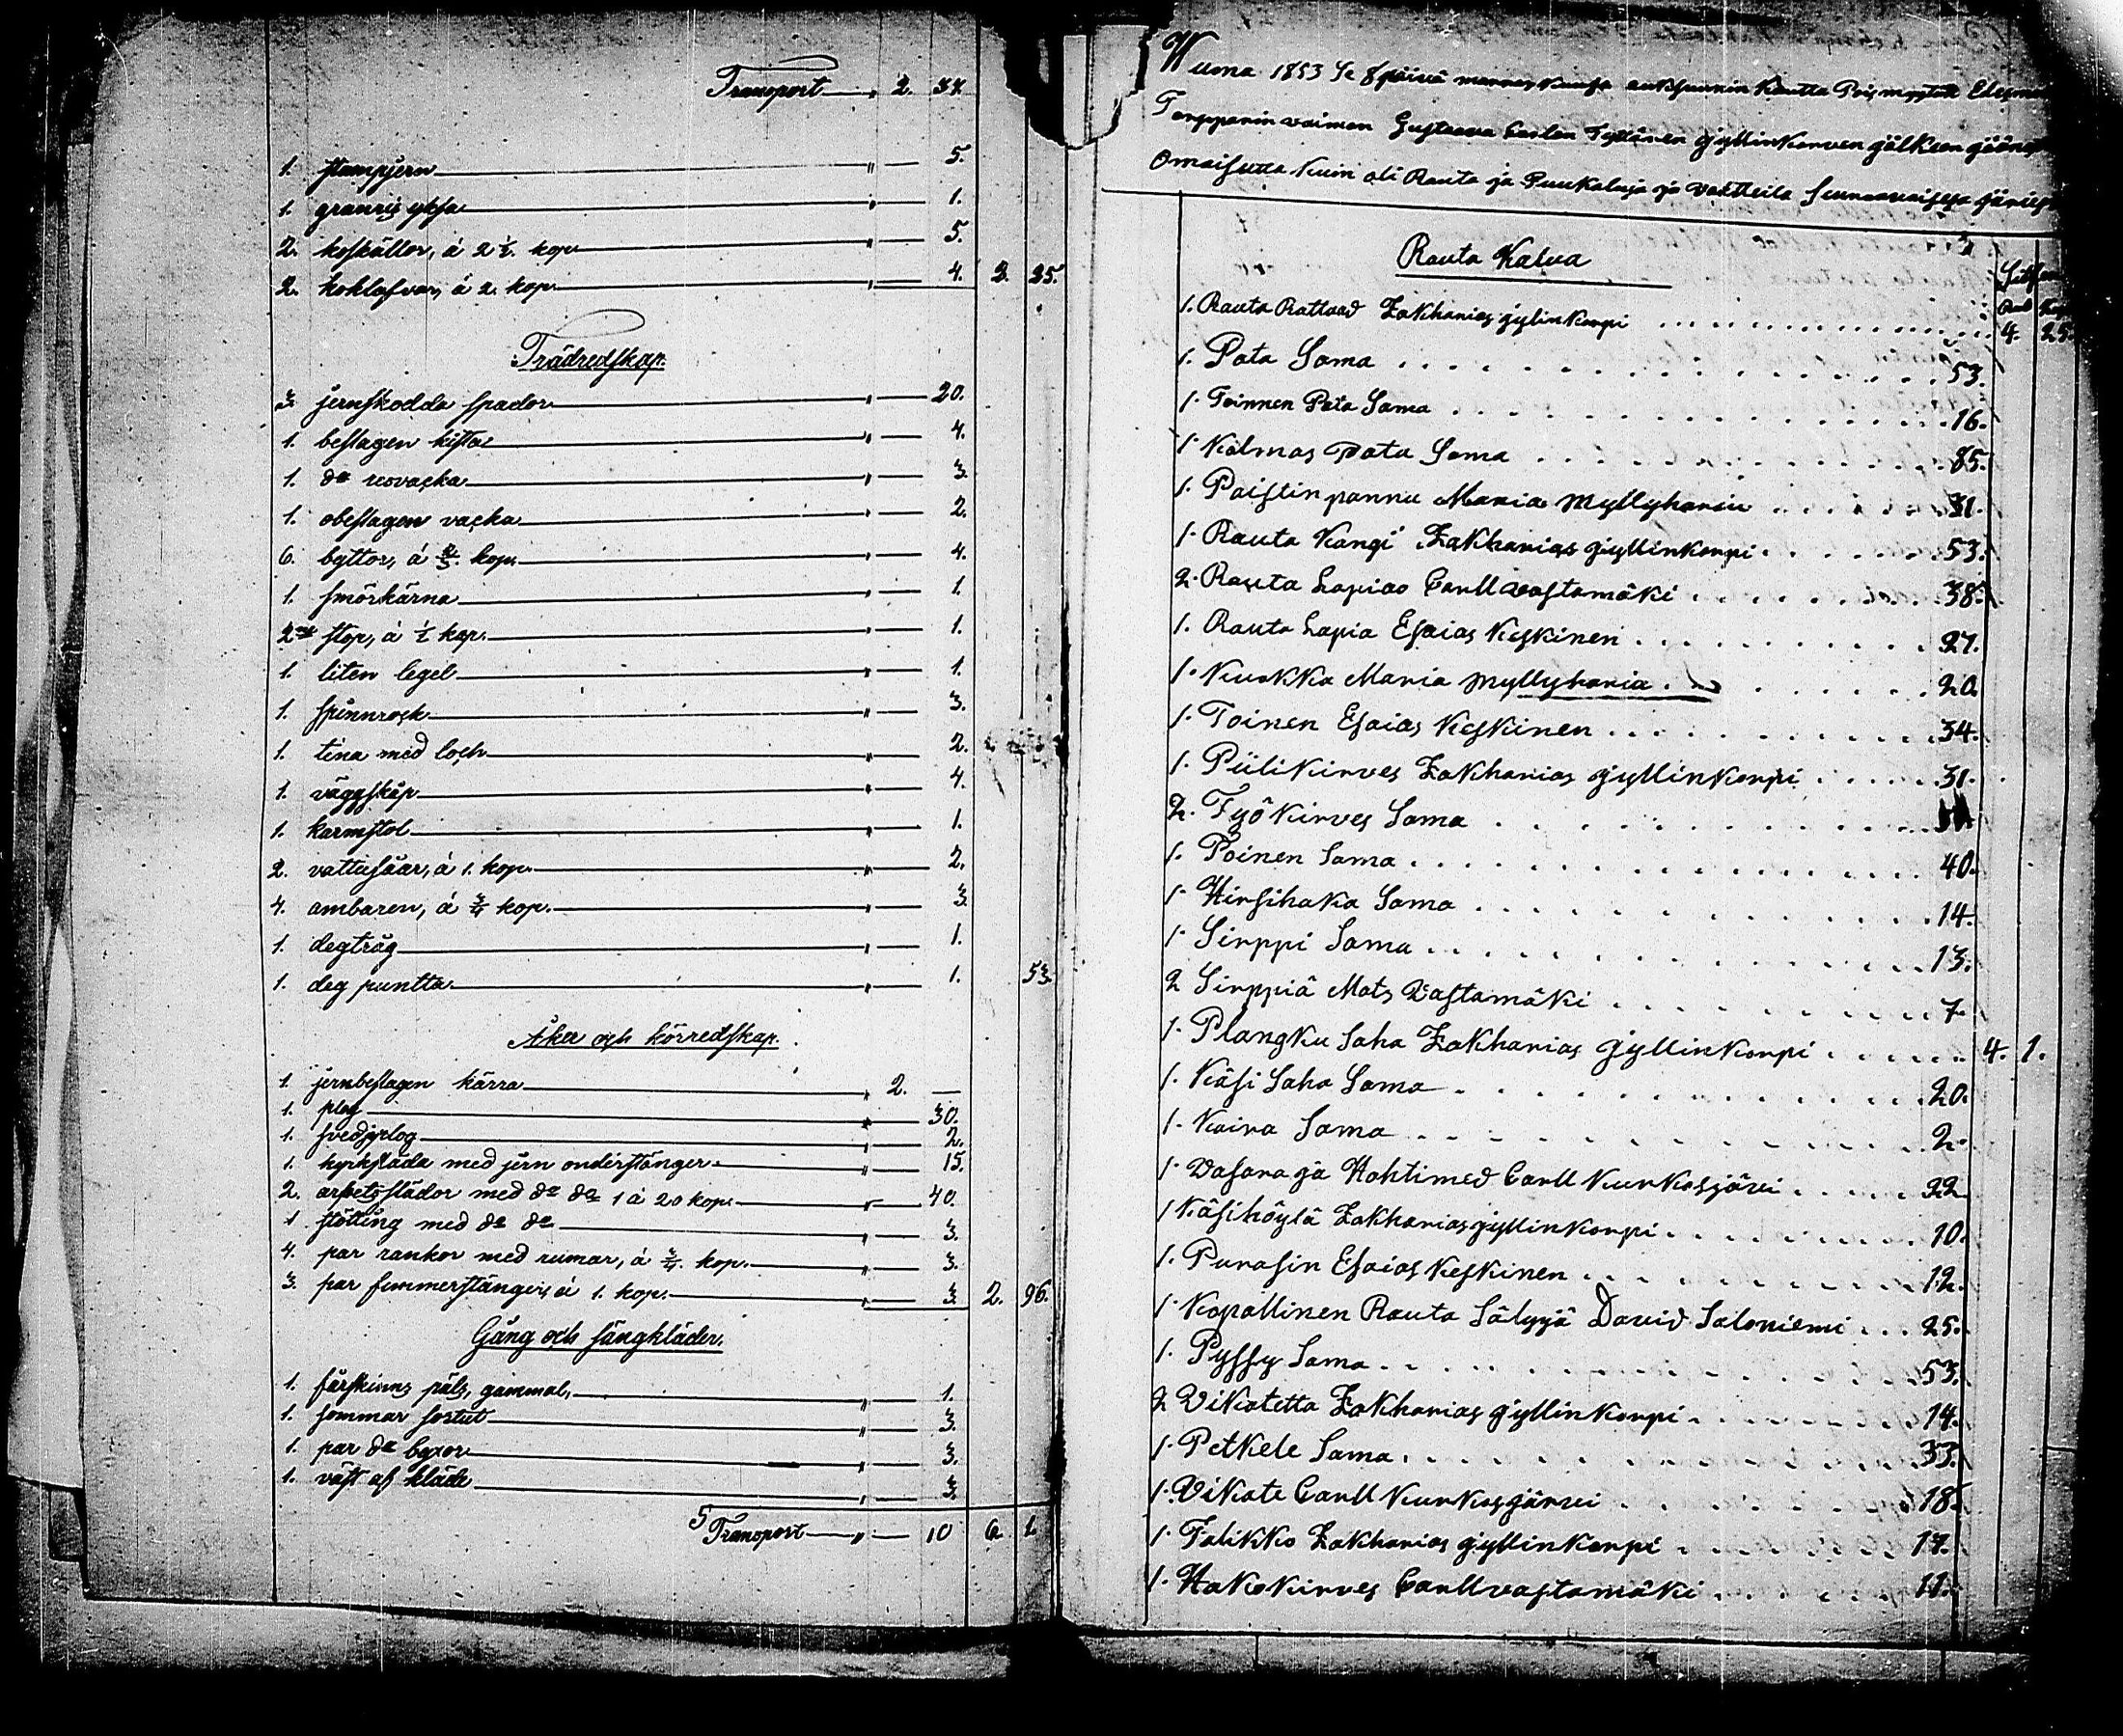 Transport " 2. 37.
1. stampjern " — 5.
1. granris yksa " — 1.
2. koskällor, á 2 1/2. kop. " — 5.
2. koklafvar, á 2. kop. — 4. 2. 25.
Trädredskap.
3. jernskodda spador " — 20.
1. beslagen kista " — 4.
1. do revaska " — 3.
1. obeslagen vaska " — 2.
6. byttor, á 2/3. kop. " — 4.
1. smörkärna " — 1.
2ne stop, á 1/2 kop. " — 1.
1. liten legel " — 1.
1. spinnrock " — 3.
1. tina med loch " — 2.
1. väggskåp " — 4.
1. karmstol " — 1.
2. vattusåar, á 1. kop. " — 2.
4. ambaren, á 3/4 kop. " — 3
1. degtråg " — 1.
1. deg puntta " — 1. 53.
Åker och körredskap.
1. jernbeslagen kärra " 2. —
1. plog " — 30.
1. svedjplog " — 2.
1. kyrksläda med jern onderstänger " — 15.
2. arbetsslädor med do do 1 á 20 kop. " — 40.
1. stötting med do do " — 3.
4. par rankor med rumar, á 3/4. kop. " — 3.
3. par femmerstänger, á 1. kop. " — 3. 2. 96.
Gång och sängkläder.
1. fårskinns päls, gammal, " — 1.
1. sommar sortut " — 3.
1. par do byxor " — 3.
1. väst af kläde " — 3.
5 Transport " — 10 6. 1.
Wuona 1853 Se 8 päivä marraskuusa auksuunin kautta Poismyytük
Torpparin vaimon Gustaava Carlen Tyttären Gyllinkorven jälkeen
Omaisutta kuin oli Rauta ja Puukaluja ja vaatteita Seuraavaisesa
Rauta Kalua
1. Rauta Rattaad Zakharias Gylinkorpi 4. 25.
1. Pata Sama 53.
1. Toinnen Pata Sama 16.
1 Kolmas Pata Sama 85.
1. Paistinpannu Maria Myllyharju 31.
1. Rauta Kangi Zakharias Gyllinkorpi 53.
2. Rauta Lapiao Carll Vastamäki 38.
1. Rauta Lapia Esaias Keskinen 27.
1. Kuokka Maria Myllyharia 20.
1. Toinen Esaias Keskinen 34.
1. Piilikirves Zakharias Gyllinkorpi 31.
2. Työkirves Sama
1. Poinen Sama 40.
1 Hirsihaka Sama 14.
1. Sirppi Sama 13.
2 Sirppiä Mats Vastamäki 7.
1. Plangku Saha Zakharias Gyllinkorpi 4. 1.
1. Käsi Saha Sama 20.
1. Kaira Sama 2.
1. Vasara ja Hohtimed Carll Kuurkosjärvi 22
1 Käsihöylä Zakharias Gyllinkorpi 10.
1. Purasin Esaias Keskinen 12.
1. Kopallinen Rauta Sälyjä David Saloniemi 25.
1. Pyssy Sama 53.
2 Vikatetta Zakharias Gyllinkorpi 14.
1. Petkele Sama 33.
1. Vikate Carll Kuurkosjärvi 18.
1. Talikko Zakharias Gyllinkorpi 17.
1. Hakokirves Carll Vastamäki 11.